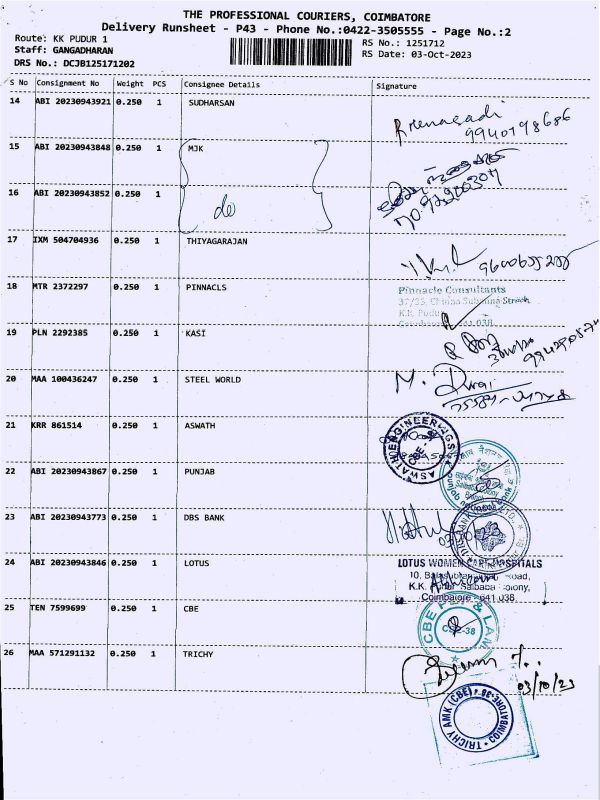 THE PROFESSIONAL COURIERS, COIMBATORE
Delivery Runsheet - P43 - Phone No.:0422-3505555 - Page No.:2
Route: KK PUDUR 1
RS No.: 1251712
Staff: GANGADHARAN
RS Date: 03-Oct-2023
DRS No.: DCJB125171202
S No Consignment No Weight PCS Consignee Details Signature
14 ABI 20230943921 0.250 1 SUDHARSAN
9940798686
15 ABI 20230943848 0.250 1 MJK
16 ABI 20230943852 0.250 1 do
17 IXM 504704936 0.250 1 THIYAGARAJAN
18 MTR 2372297 0.250 1 PINNACLS
Pinnacle Consultants
K.K. Pudur
19 PLN 2292385 0.250 1 KASI
20 MAA 100436247 0.250 1 STEEL WORLD
M. Durai
21 KRR 861514 0.250 1 ASWATH
ASWATH ENGINEERINGS
22 ABI 20230943867 0.250 1 PUNJAB
23 ABI 20230943773 0.250 1 DBS BANK
24 ABI 20230943846 0.250 1 LOTUS
LOTUS WOMEN CARE HOSPITALS
Coimbatore - 641 038.
25 TEN 7599699 0.250 1 CBE
26 MAA 571291132 0.250 1 TRICHY
03/10/23
TRICHY AMK (CBE) COIMBATORE-38